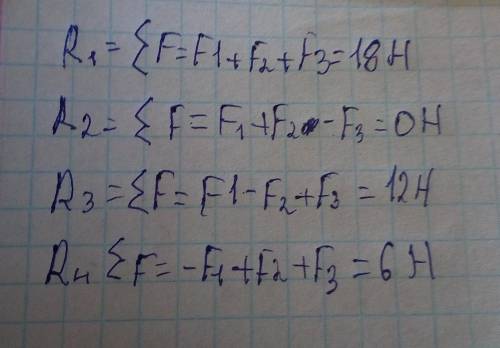 R1 = {F = F1 + F2 + F3 = 18 Н
R2 = { F = F1 + F2 - F3 = 0 Н
R3 = {F = F1 - F2 + F3 = 12 Н
R4 {F = -F1 + F2 + F3 = 6 Н